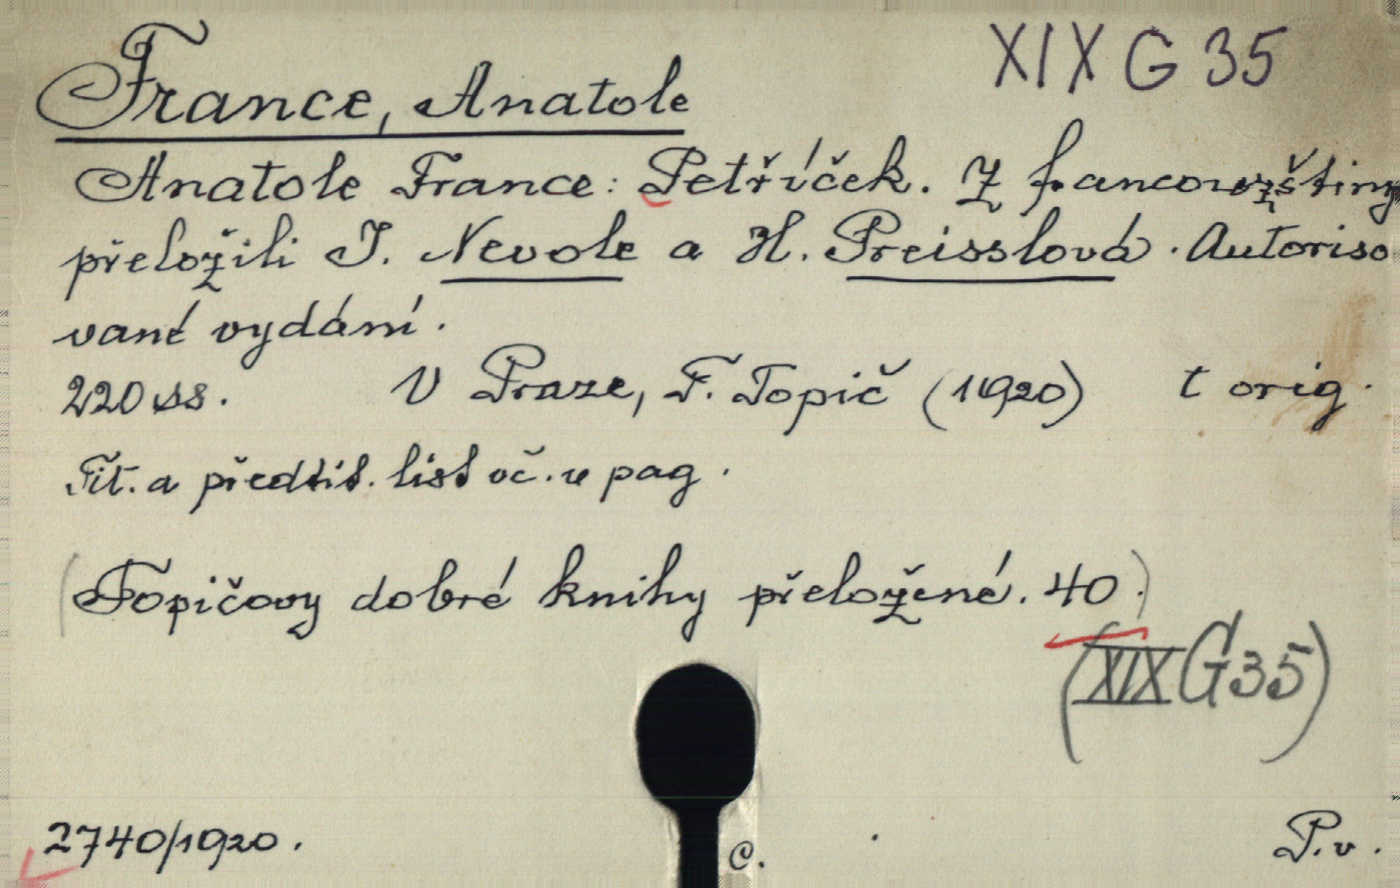 XIX G 35
France, Anatole
Anatole France: Petříček. Z francouzštiny
přeložili J. Nevole a H. Preisslová. Autoriso
vané vydání.
220 ss. V Praze, F. Topič (1920) t orig.
Tit. a předtit. list vč. v pag.
(Topičovy dobré knihy přeložené. 40.)
(XIX G 35)
2740/1920. C. P. v.